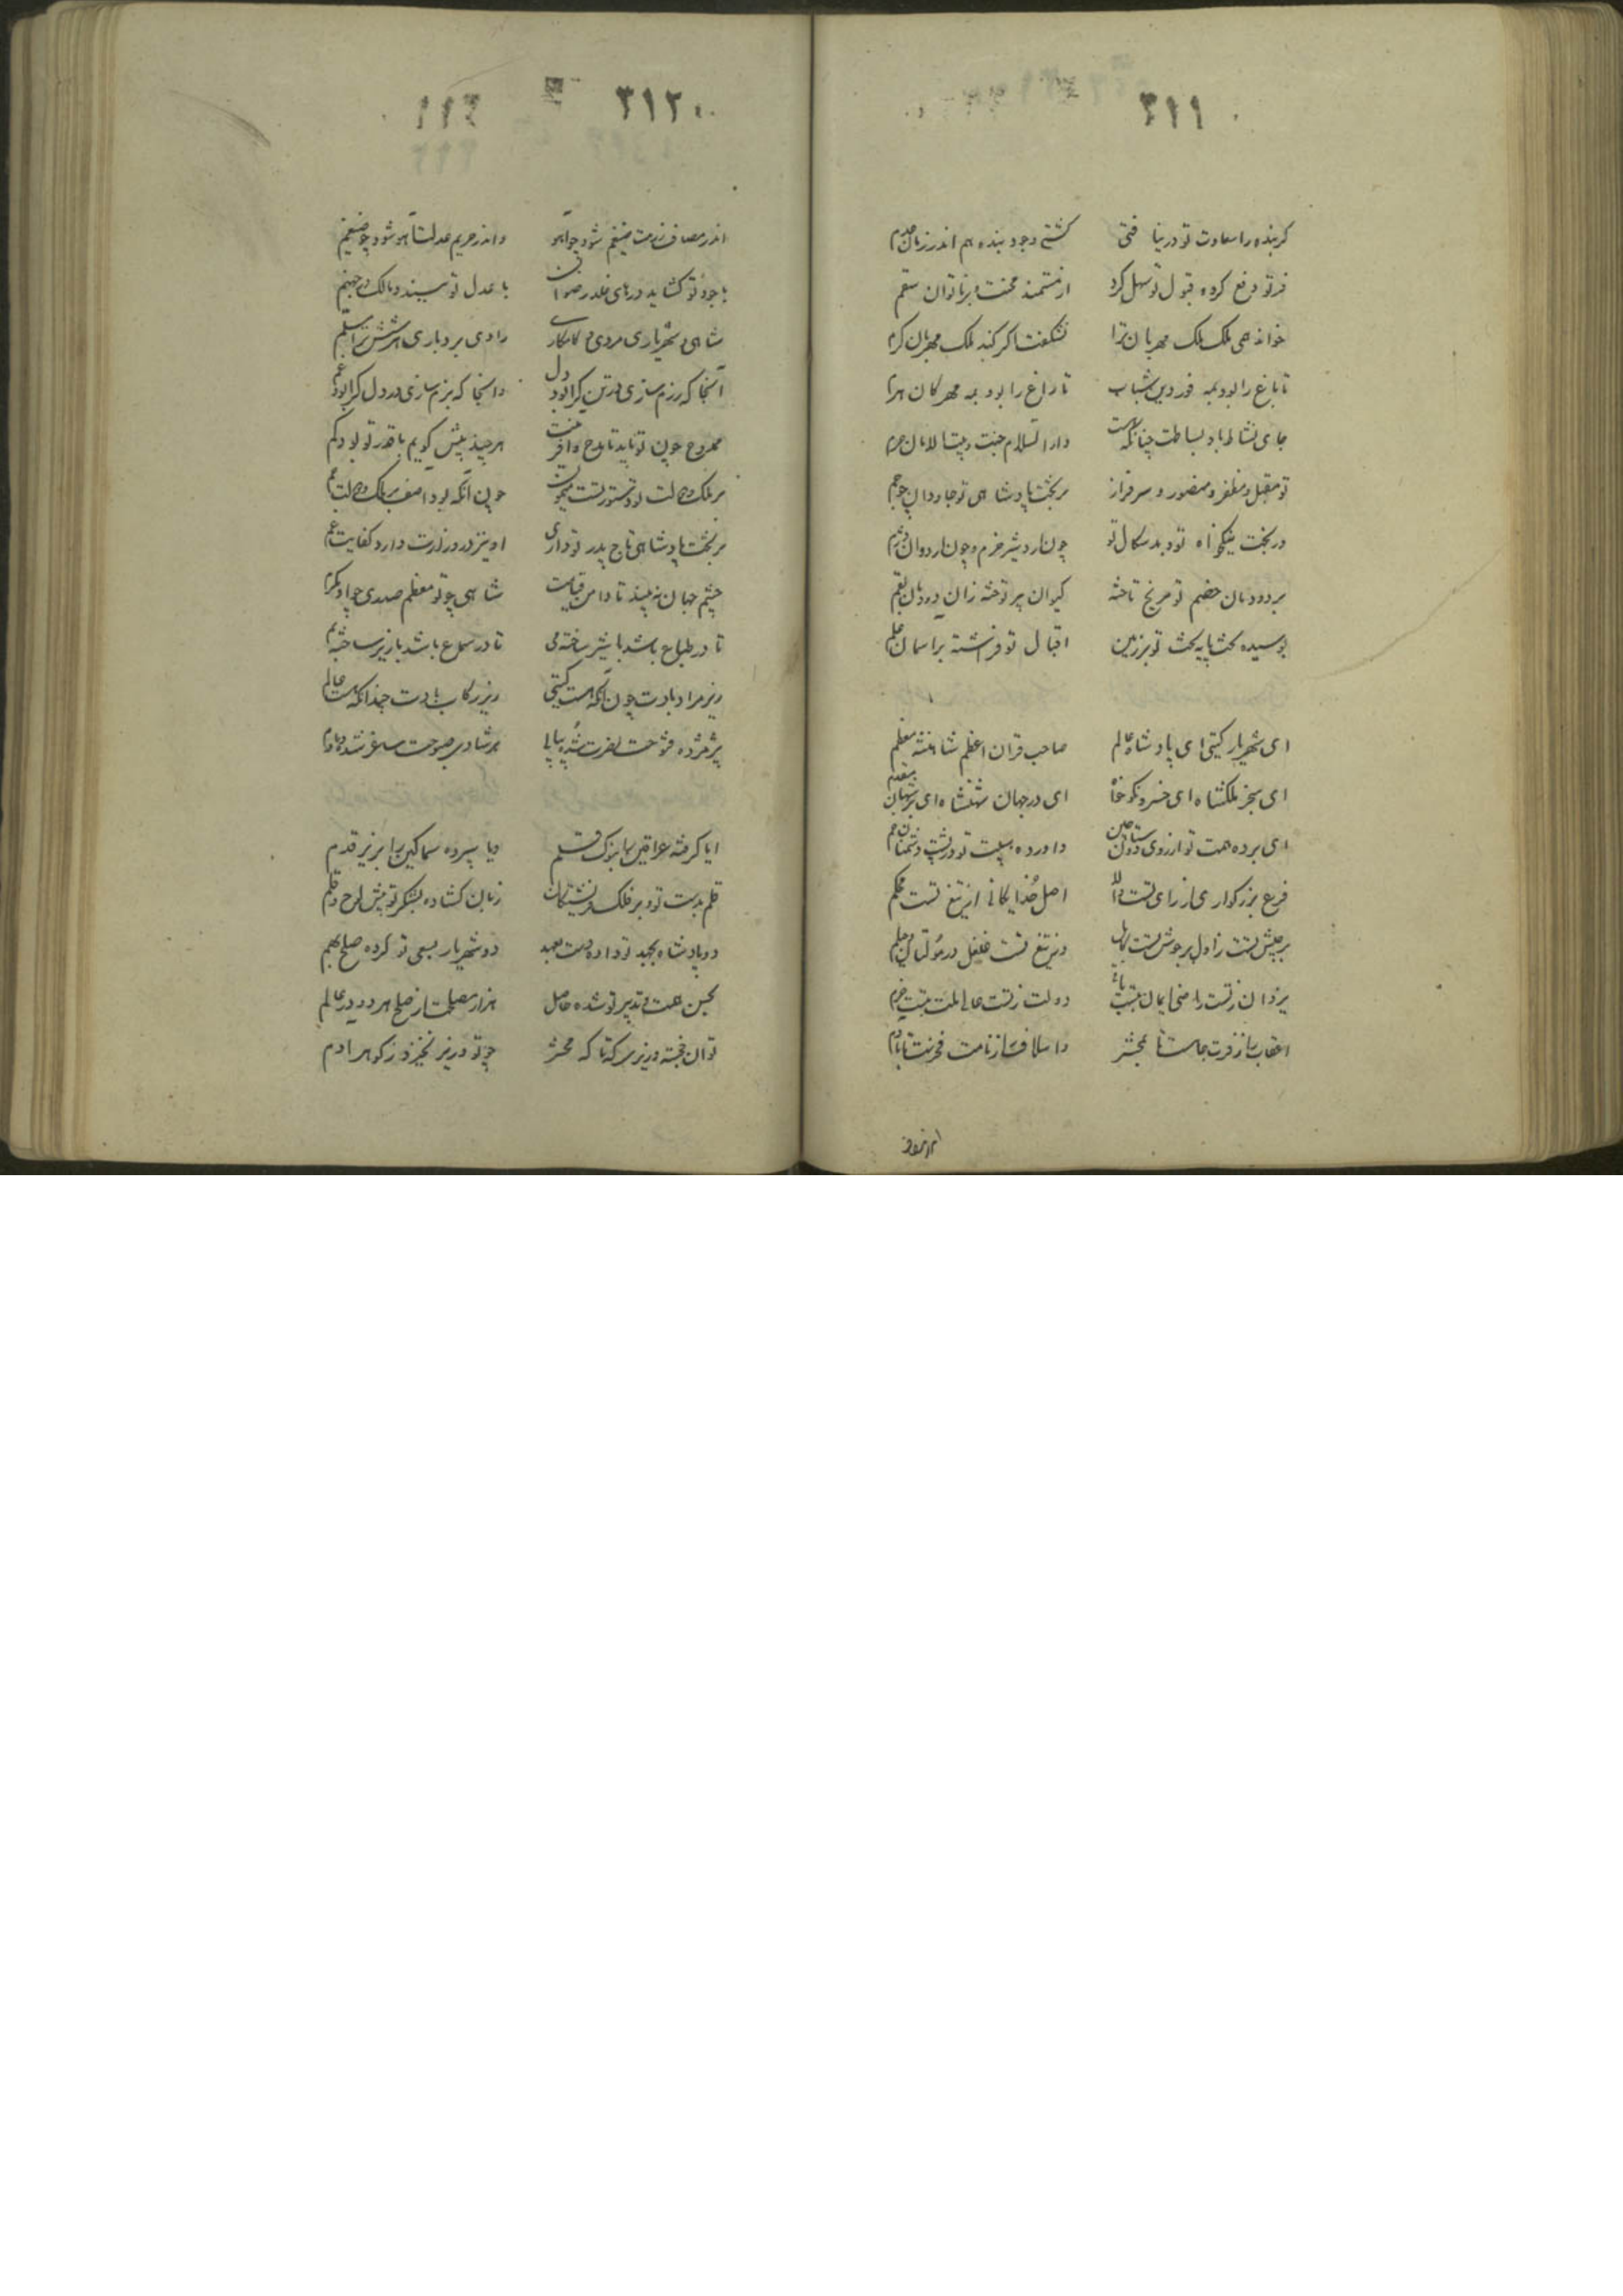 ۳۱۱
کر بنده را سعادت تو درنیا فتی کشتی وجود بنده هم اندر زمان عدم
فر تو دفع کرده قبول تو سهل کرد از مستمند محنت و بر ناتوان سقم
خواند همی ملک ملک مهربان ترا نشکفت اکر کند ملک مهربان کرم
تا باغ را بود بمه فرودین شباب تا راغ را بود بمه مهرکان هرم
جای نشاط باد بساطت چنانکه هست دار السلام جنت و بیت الامان حرم
تو مقبل و مظفر و منصور و سرفراز بر تخت پادشاهی تو جاودان چو جم
در تخت نیکخواه تو و بدسکال تو چون اردشیر خرم و چون اردوان دژم
بر دودمان خصم تو مریخ تاخته کیوان پر توخته زان دودمان نقم
بوسیده تخت پایه تخت تو بر زمین اقبال تو فراشته بر اسمان علم
ای شهریار کیتی ای پادشاه عالم صاحب قران اعظم شاهنشه معظم
ای سنجر ملکشاه ای خسرو نکوخواه ای در جهان شهنشاه ای بر شهان مقدم
ای برده همت تو از روی دوستان چین واورده هیبت تو در پشت دشمنان خم
فرع بزرکواری از رای تست والا اصل خدایکانی از تیغ تست محکم
بر جیش تست زاول پر جوش تست کابل وز تیغ تست غلغل در مولتان و جیلم
یزدان ز تست راضی ایمان بتست باقی دولت ز تست عالی ملت بتست خرم
اعقاب را ز فرت جاهست تا بمحشر واسلاف را ز نامت فخرست تا بادم
۳۱۲
اندر مصاف رزمت ضیغم شود چو آهو واندر حریم عدلت آهو شود چو ضیغم
با جود تو کشاید درهای خلد رضوان با عدل تو ببندد مالک در جهنم
شاهی و شهریاری مردی و کامکاری رادی و بردباری هر شش ترا مسلم
آنجا که رزم سازی در تن کرا بود دل وانجا که بزم سازی در دل کرا بود غم
ممدوح چون تو باید تا مدح وافر هر چند بیش کویم با قدر تو بود کم
بر ملک و دولت تو دستور تست میمون چون انکه بود آصف بر ملک و دولت جم
بر تخت پادشاهی تاج پدر تو داری او نیز در وزارت دارد کفایت عم
چشم جهان نه بیند تا دامن قیامت شاهی چو تو معظم صدری چو او مکرم
تا در طباع باشد با شیر ساخته می تا در سماع باشد با زیر ساخته بم
زیر مراد بادت چون انکه هست کیتی زیر رکاب بادت چندانکه هست عالم
بر مژده فتوحت نصرت شده پیاپی بر شادی صبوحت ساغر شده دمادم
ایا کرفته عراقین را بنوک قلم و یا سپرده سماکین را بزیر قدم
قلم بدست تو و بر فلک فرشتکان زبان کشاده بشکر تو پیش لوح و قلم
دو پادشاه بجهد تو داده دست بعهد دو شهریار بسعی تو کرده صلح بهم
بحسن همت و تدبیر تو شده حاصل هزار مصلحت از صلح هر دو در عالم
توان خجسته وزیری که تا که محشر چو تو وزیر نخیزد ز کوهر ادم